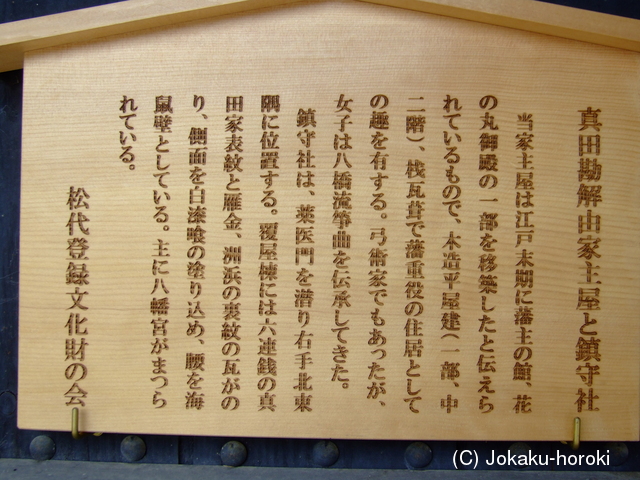 真田勘解由家主屋と鎮守社
当家主屋は江戸末期に藩主の館、花
の丸御殿の一部を移築したと伝えら
れているもので、木造平屋建(一部、中
二階)、桟瓦葺で藩重役の住居として
の趣を有する。弓術家でもあったが、
女子は八橋流箏曲を伝承してきた。
鎮守社は、薬医門を潜り右手北東
隅に位置する。覆屋棟には六連銭の真
田家表紋と雁金、洲浜の裏紋の瓦がの
り、側面を白漆喰の塗り込め、腰を海
鼠壁としている。主に八幡宮がまつら
れている。
松代登録文化財の会
(C) Jokaku-horoki